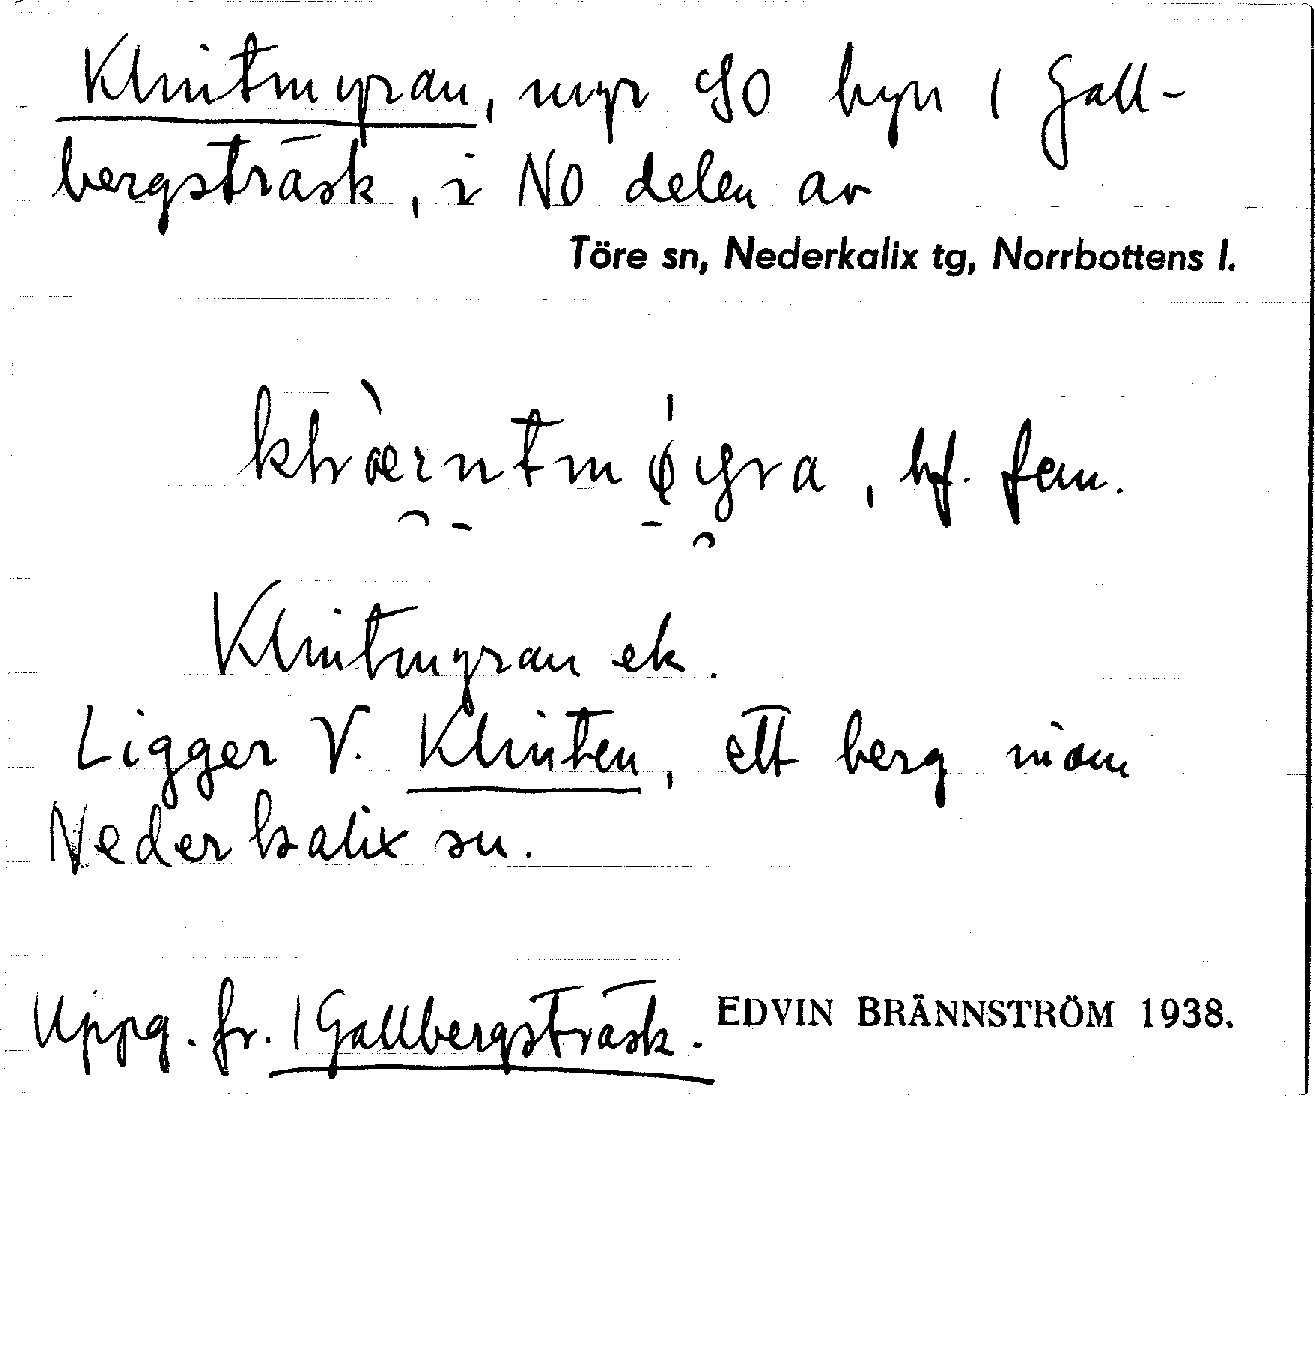 Klintmyran, myr SO byn 1 Gall-
bergsträsk, i NO delen av
Töre sn, Nederkalix tg, Norrbottens l.
, bf. fem.
Klintmyran ek.
Ligger V. Klinten, ett berg inom
Nederkalix sn.
Uppg. fr. 1 Gallbergsträsk. EDVIN BRÄNNSTRÖM 1938.